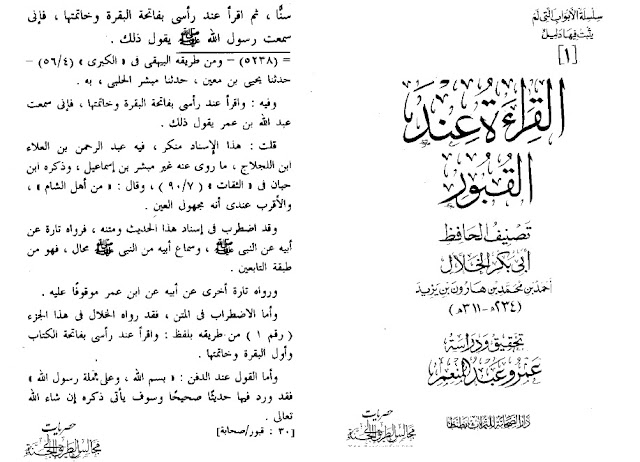 سلسلة الأبواب التي لم
يثبت فيها دليل
[١]
القراءة عند
القبور
تصنيف الحافظ
أبي بكر الخلال
أحمد بن محمد بن هارون بن يزيد
(٢٣٤هـ - ٣١١هـ)
تحقيق ودراسة
عمرو عبد المنعم
دار الصحابة للتراث بطنطا
حصريات
سنًّا ، ثم اقرأ عند رأسى بفاتحة البقرة وخاتمتها ، فإنى
سمعت رسول الله ﷺ يقول ذلك .
= (٥٢٣٨) – ومن طريقه البيهقى فى « الكبرى » (٥٦/٤) –
حدثنا يحيى بن معين ، حدثنا مبشر الحلبى ، به .
وفيه : واقرأ عند رأسى بفاتحة البقرة وخاتمتها ، فإنى سمعت
عبد الله بن عمر يقول ذلك .
قلت : هذا الإسناد منكر ، فيه عبد الرحمن بن العلاء
ابن اللجلاج ، ما روى عنه غير مبشر بن إسماعيل ، وذكره ابن
حبان فى « الثقات » (٩٠/٧) ، وقال : « من أهل الشام » ،
والأقرب عندى أنه مجهول العين .
وقد اضطرب فى إسناد هذا الحديث ومتنه ، فرواه تارة عن
أبيه عن النبى ﷺ ، وسماع أبيه من النبى ﷺ محال ، فهو من
طبقة التابعين .
ورواه تارة أخرى عن أبيه عن ابن عمر موقوفًا عليه .
وأما الاضطراب فى المتن ، فقد رواه الخلال فى هذا الجزء
( رقم ١ ) من طريقه بلفظ : واقرأ عند رأسى بفاتحة الكتاب
وأول البقرة وخاتمتها .
وأما القول عند الدفن : « بسم الله ، وعلى ملة رسول الله »
فقد ورد فيها حديثًا صحيحًا وسوف يأتى ذكره إن شاء الله
تعالى .
[٣٠ : قبور/صحابة]
حصريات